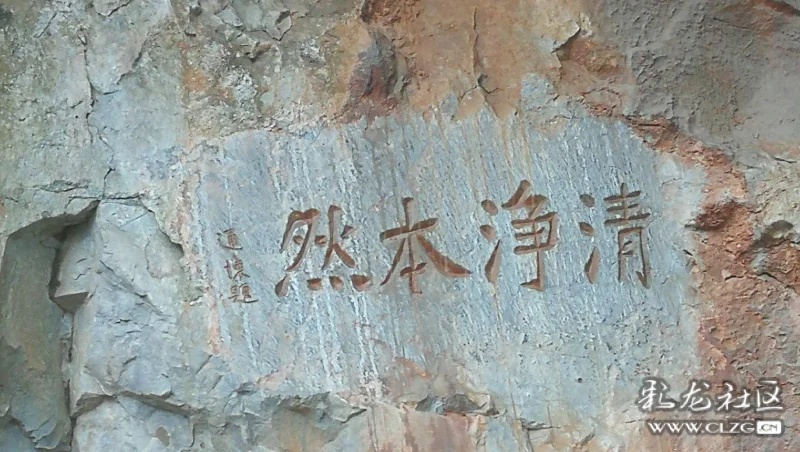 清淨本然
彩龙社区
WWW.CLZG.CN